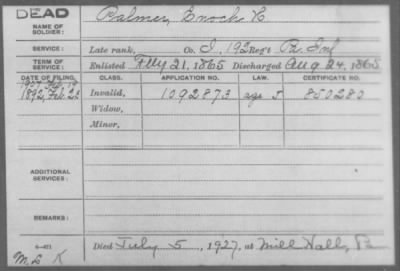 DEAD
NAME OF SOLDIER: Palmer, Enoch C
SERVICE: Late rank, Co. I, 192 Reg't Pa. Inf
TERM OF SERVICE: Enlisted Feby 21, 1865 Discharged Aug. 24, 1865
DATE OF FILING. CLASS. APPLICATION NO. LAW. CERTIFICATE NO.
1907
1892, Feb. 22 Invalid, 1092873 age 850280
Widow,
Minor,
ADDITIONAL SERVICES:
REMARKS:
Died July 5, 1927, at Mill Hall, Pa